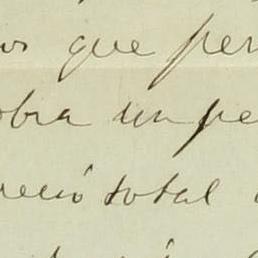 que per
obra un pe
reció total